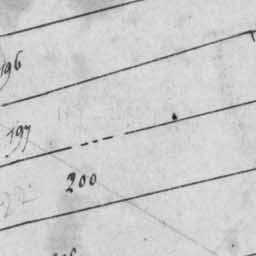 196
197
200